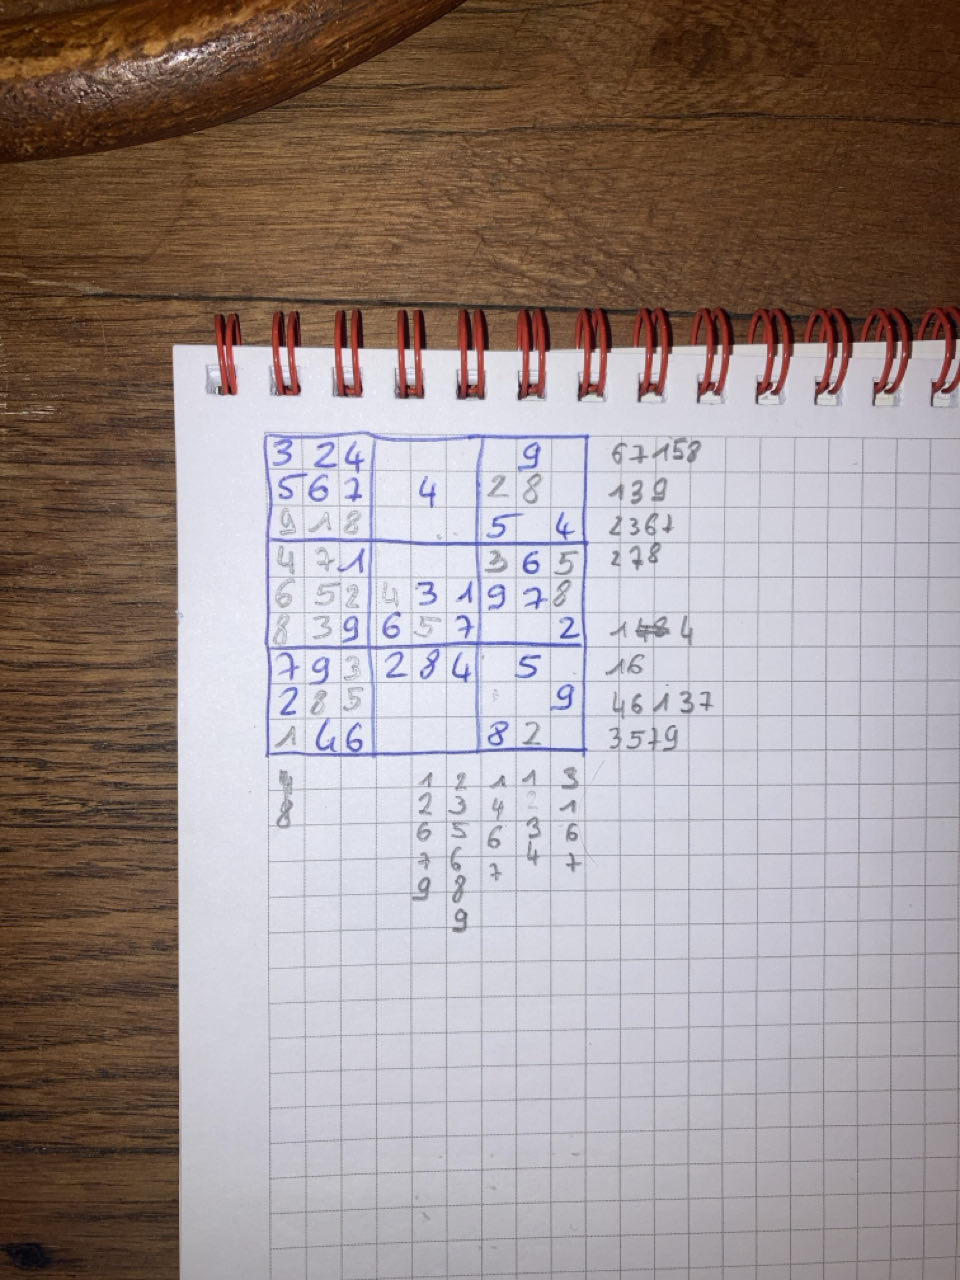 3 2 4 9 67158
5 6 7 4 2 8 139
9 1 8 5 4 2367
4 7 1 3 6 5 278
6 5 2 4 3 1 9 7 8
8 3 9 6 5 7 2 1 4
7 9 3 2 8 4 5 16
2 8 5 9 46137
1 4 6 8 2 3579
1 2 1 1 3
8 2 3 4 1
6 5 6 3 6
7 6 7 4 7
9 8
9